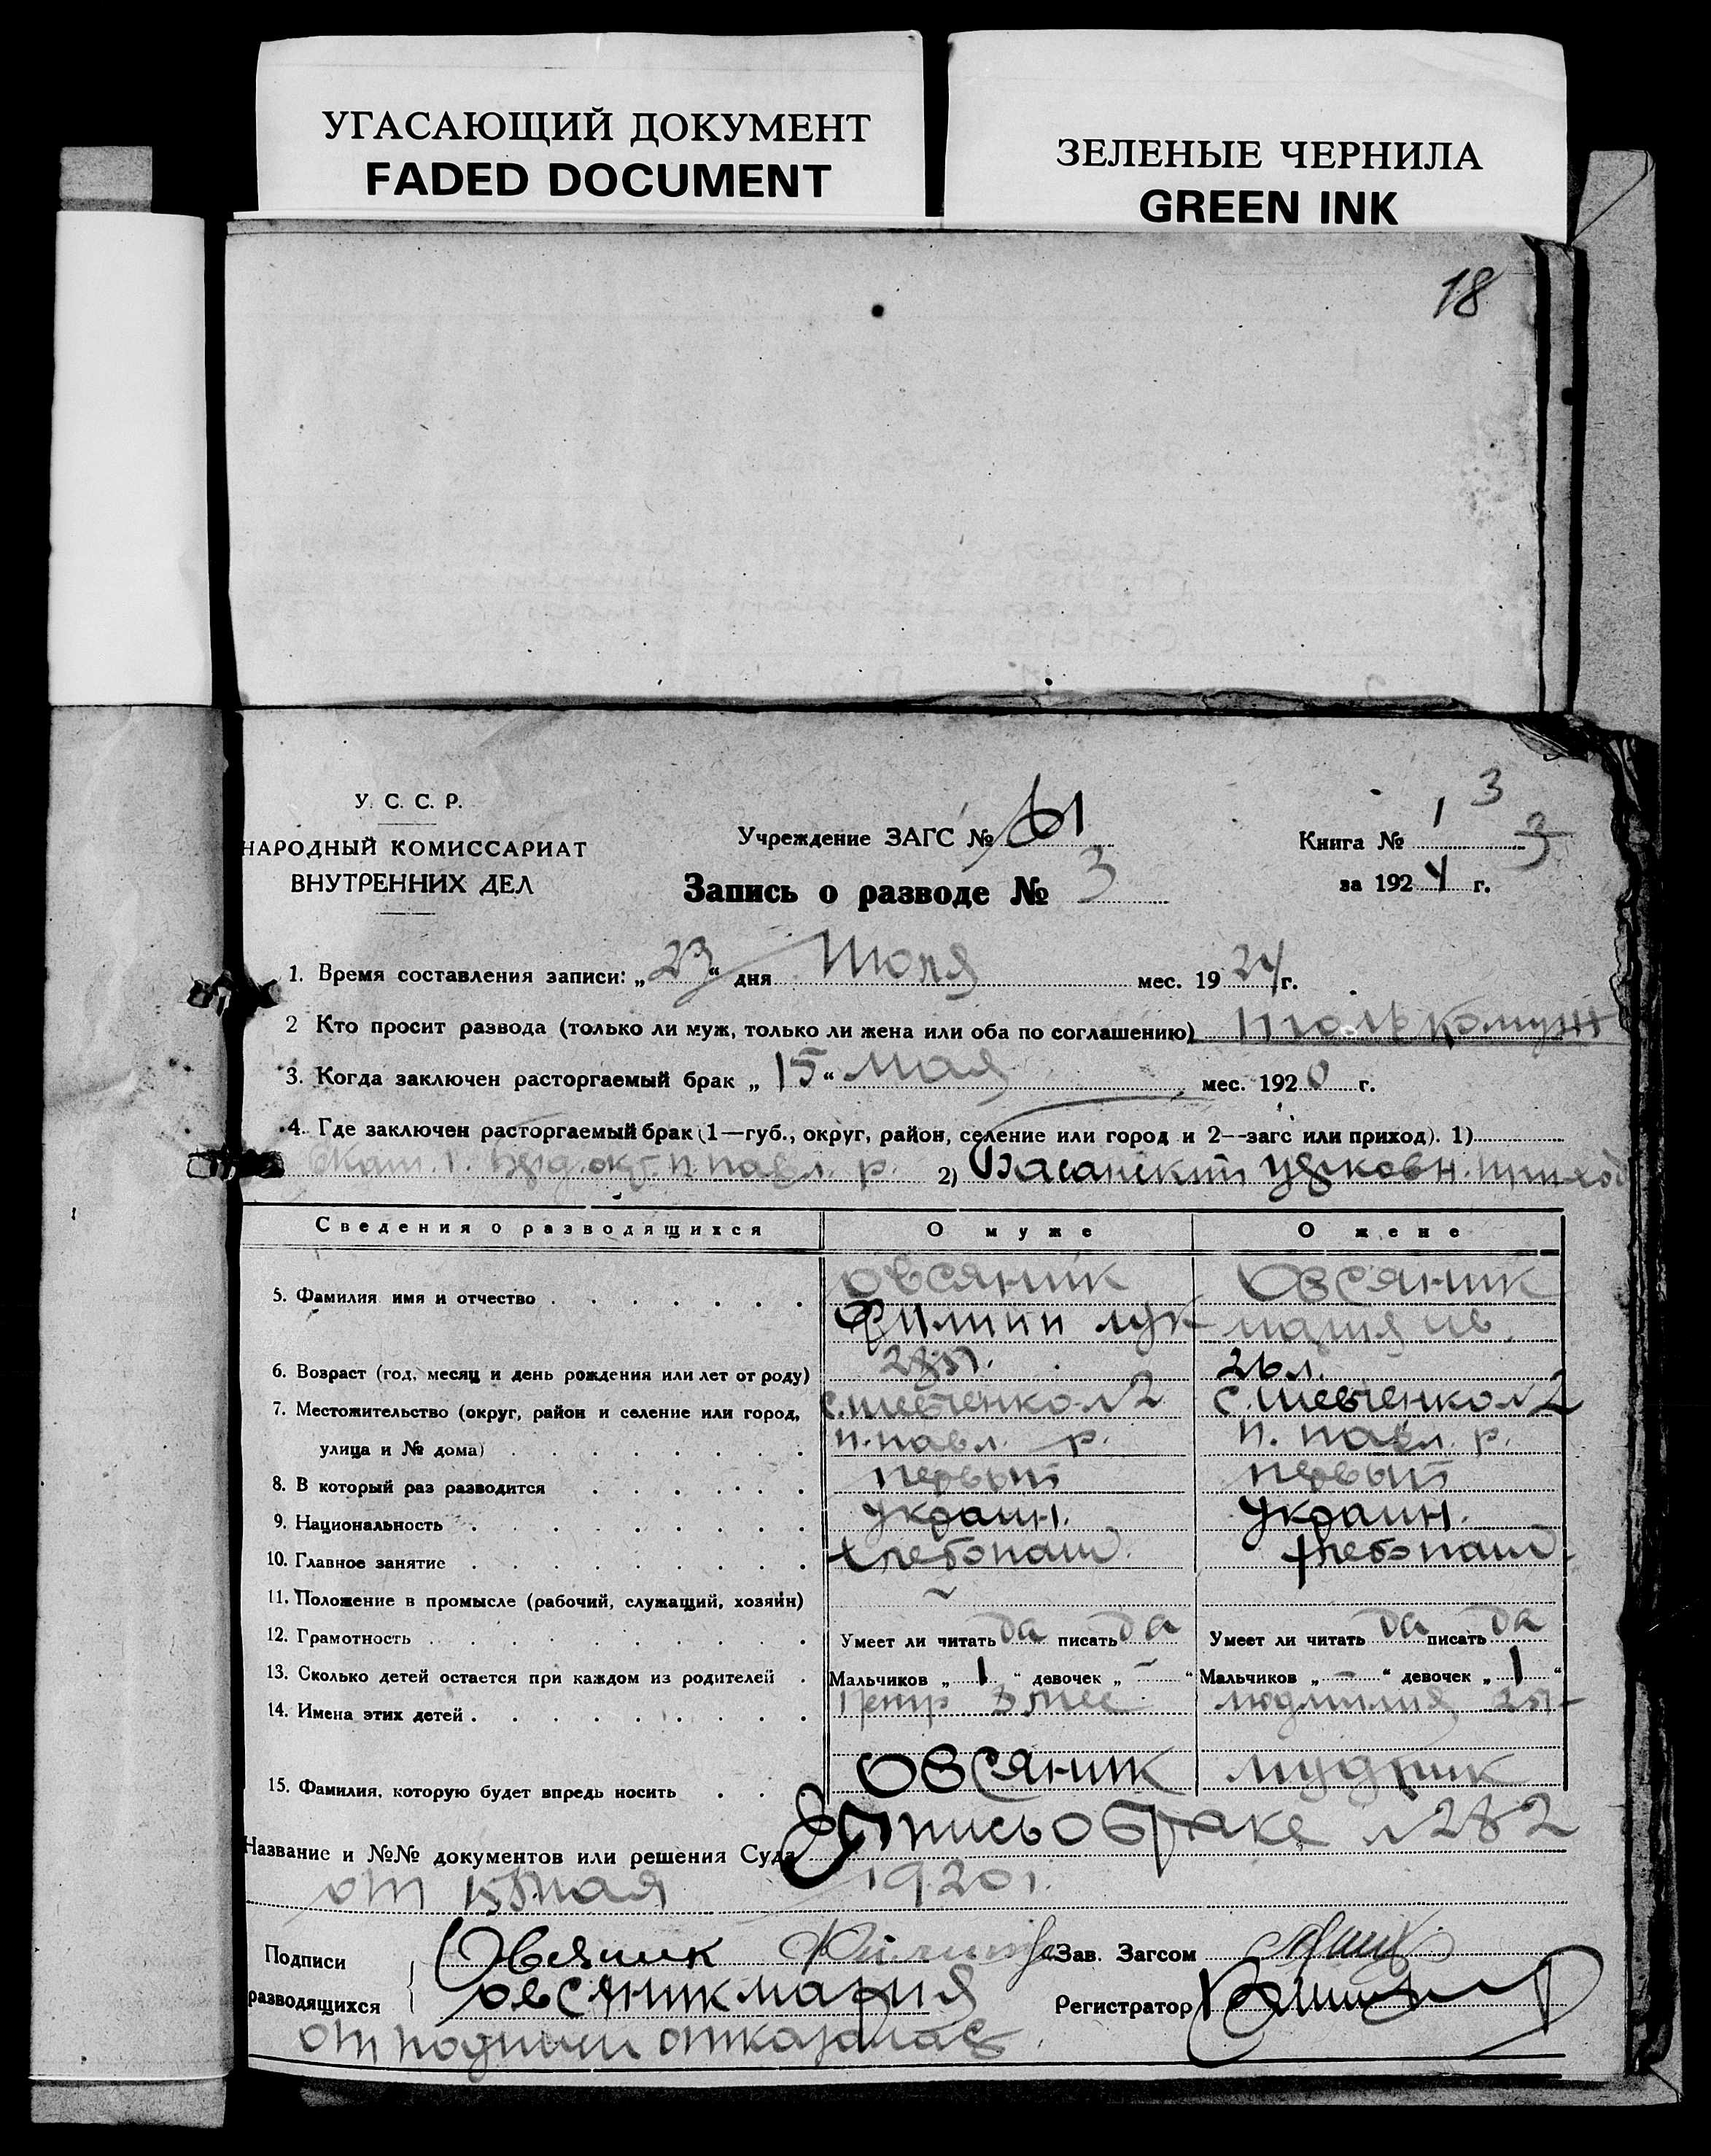 УГАСАЮЩИЙ ДОКУМЕНТ
FADED DOCUMENT
ЗЕЛЕНЫЕ ЧЕРНИЛА
GREEN INK
18
У. С. С. Р.
НАРОДНЫЙ КОМИССАРИАТ
ВНУТРЕННИХ ДЕЛ
Учреждение ЗАГС № 61
Запись о разводе № 3
3
Книга № 1 3
за 1924 г.
1. Время составления записи: „23“ дня Июля мес. 1924 г.
2 Кто просит развода (только ли муж, только ли жена или оба по соглашению) только муж
3. Когда заключен расторгаемый брак „15“ Мая мес. 1920 г.
4. Где заключен расторгаемый брак (1—губ., округ, район, селение или город и 2--загс или приход). 1)
Екат. г. окр. п. павл. р. 2) Басанский церковн. приход
Сведения о разводящихся О муже О жене
5. Фамилия имя и отчество Овсяник Овсяник
Филипп лук мария ив.
6. Возраст (год, месяц и день рождения или лет от роду) 28 л. 26 л.
7. Местожительство (округ, район и селение или город, с. шевченко №2 с. шевченко №2
улица и № дома) п. павл. р. п. павл. р.
8. В который раз разводится первый первый
9. Национальность украин. украин.
10. Главное занятие хлебопаш. хлебопаш.
11. Положение в промысле (рабочий, служащий, хозяин) ~
12. Грамотность Умеет ли читать да писать да Умеет ли читать да писать да
13. Сколько детей остается при каждом из родителей Мальчиков „1“ девочек „—“ Мальчиков „—“ девочек „1“
14. Имена этих детей Петр 3 мес. людмилия 2 л
15. Фамилия, которую будет впредь носить Овсяник мудрик
Название и №№ документов или решения Суда Запись о браке №282
от 15 мая 1920 г.
Подписи Овсяник Филипп Зав. Загсом
разводящихся Овсяник мария Регистратор
от подписи отказалась